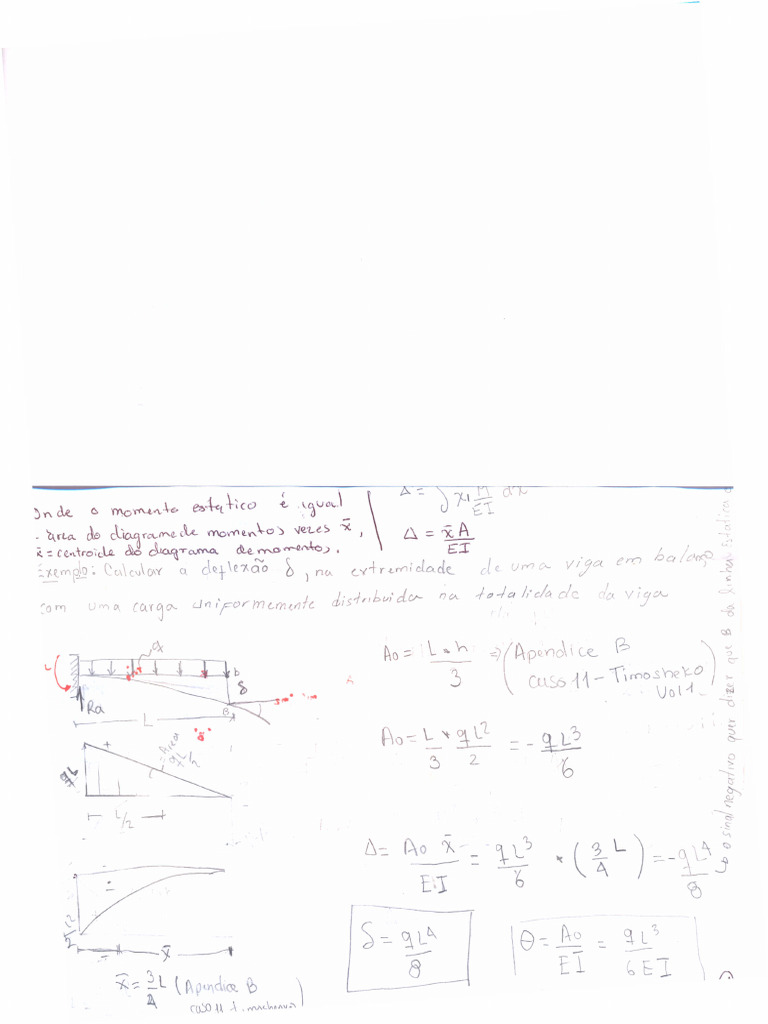 Onde o momento estático é igual
- área do diagrama de momentos vezes x̄,
x̄ = centroide do diagrama de momentos.
Δ = ∫ x₁ M/EI dx
Δ = x̄A/EI
Exemplo: Calcular a deflexão δ, na extremidade de uma viga em balanço
com uma carga uniformemente distribuida na totalidade da viga
q
b
δ
Ra
B
L
+
qL
= Area qL²/2
L/2
-
x̄
x̄ = 3L/4 (Apendice B
caso 11
Ao = L * h / 3 ⇒ (Apendice B
caso 11 - Timosheko
Vol 1
Ao = L/3 * qL²/2 = - qL³/6
Δ = Ao x̄ / E.I = qL³/6 * (3/4 L) = - qL⁴/8
δ = qL⁴/8
θ = Ao/EI = qL³/6EI
o sinal negativo quer dizer que B da linha elástica